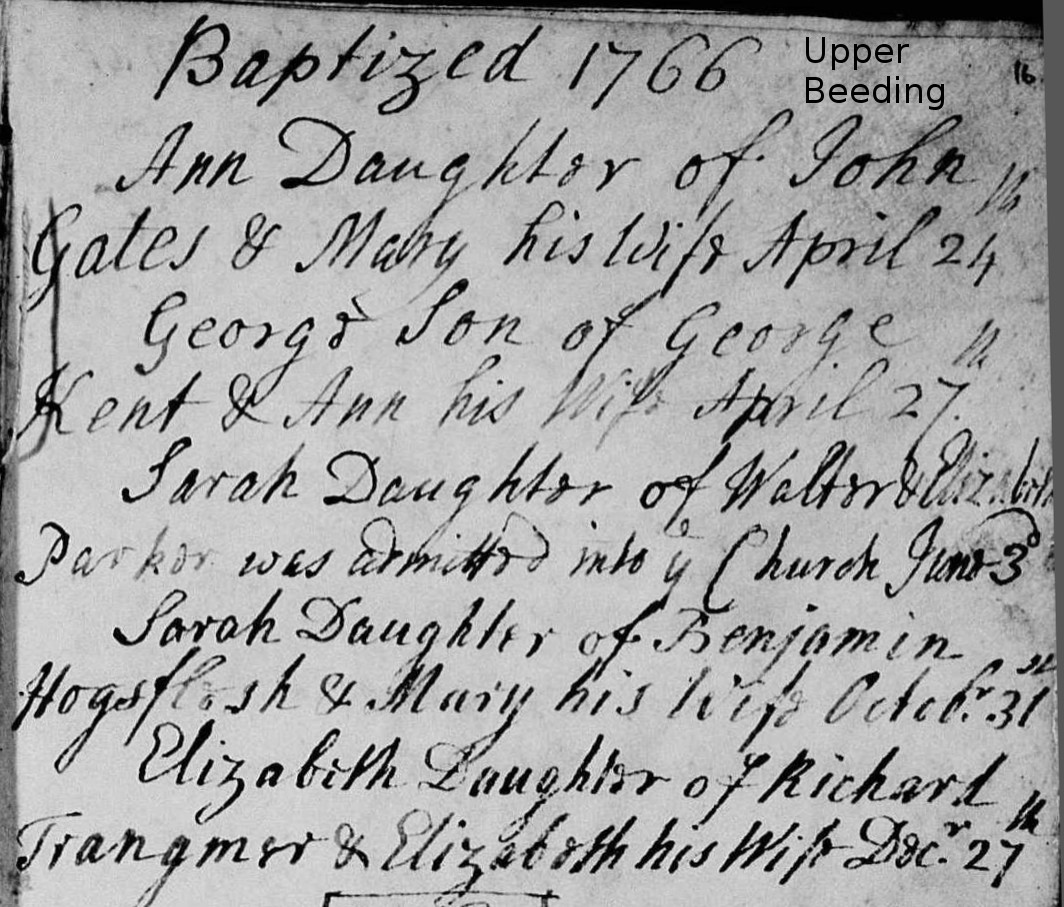 Baptized 1766
Upper
Beeding
16
Ann Daughter of John
Gates & Mary his Wife April 24th
George Son of George
Kent & Ann his Wife April 27th
Sarah Daughter of Walter & Elizabeth
Parker was admitted into ye Church June 3d
Sarah Daughter of Benjamin
Hogsflesh & Mary his Wife Octobr. 31st
Elizabeth Daughter of Richard
Trangmer & Elizabeth his Wife Decr. 27th